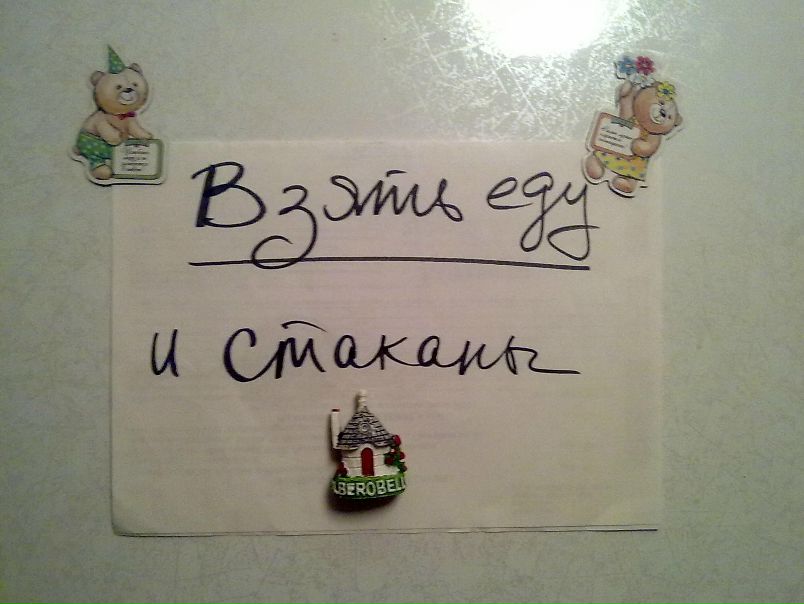 Взять еду
и стаканы
LBEROBELL